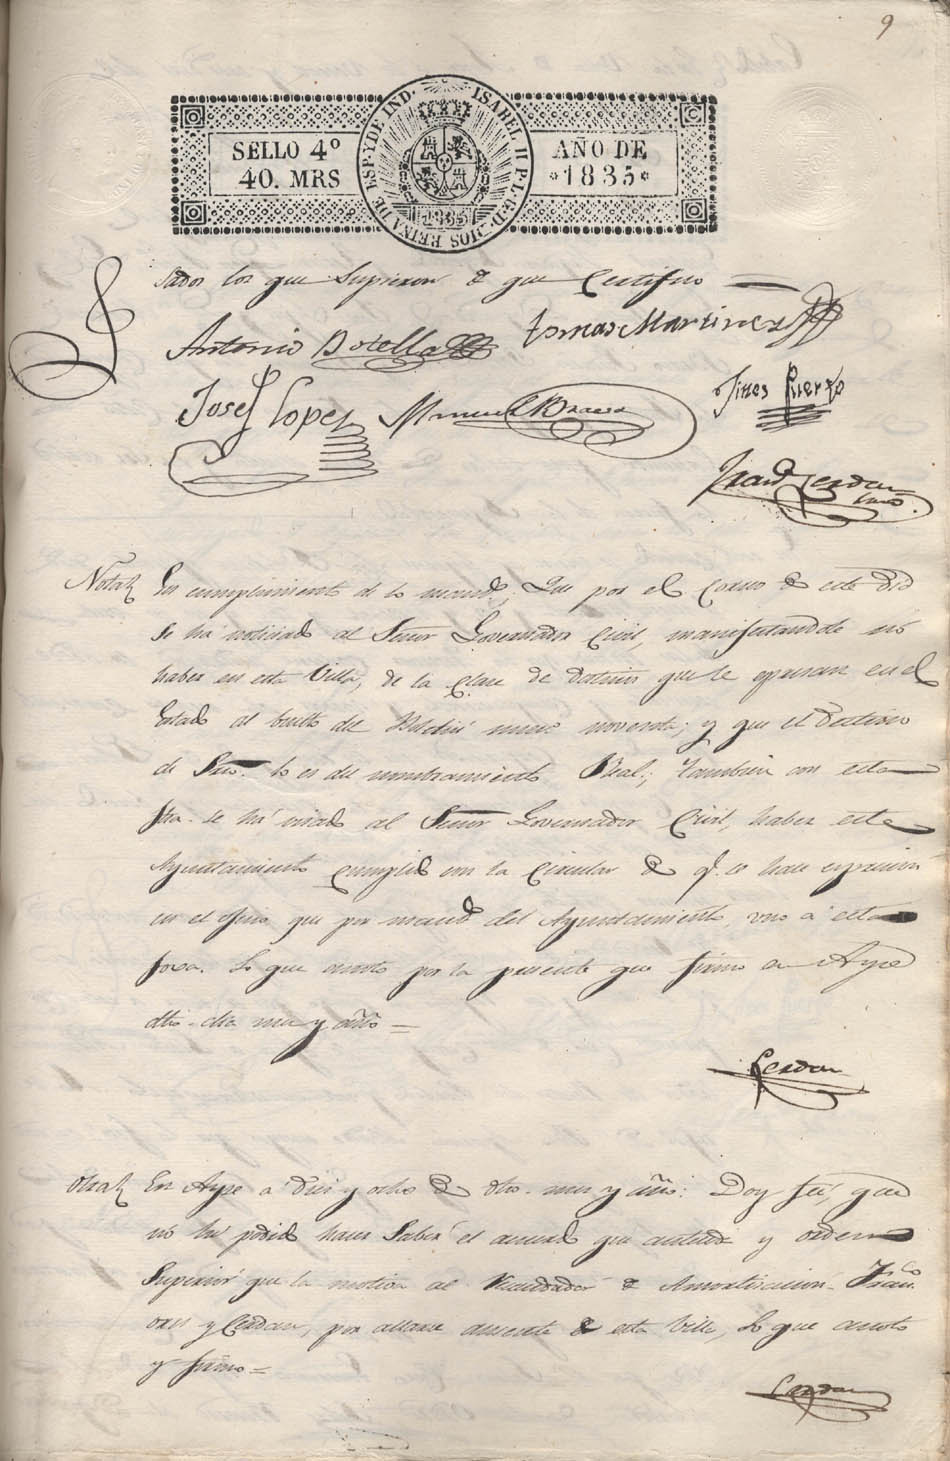 9
SELLO 4º
40. MRS
ISABEL II P. L. G. D. DIOS REINA DE ESP. Y DE IND.
1835
AÑO DE
1835
sados los que Supieron de que Certifico
Antonio Botella
tomas Martinez
Josef Lopez
Manuel Bravo
Jines Puerto
Franco Cerdan
Srio.
Nota
En cumplimiento de lo mandado; Que por el Correo de este dia
se há noticiado al Señor Governador Civil, manifestandole no
haber en esta Villa, de la clase de destinos que se espresan en el
Estado al buelto del Boletin numo noventa; y que el destino
de Srio. lo es de nombramiento Real; tambien con esta
fha. se há al Señor Governador Civil, haber este
Ayuntamiento cumplido con la Circular de q.e se hace espresion
en el oficio que por mando del Ayuntamiento, a esta
Lo que anoto por la presente que firmo en Aspe
dho. dia mes y año =
Cerdan
Otra
En Aspe a dies y ocho de dho. mes y año: Doy feé, que
no hé podido hacer Saber el acuerdo que antecede y orden
Superior que la motiva al Recaudador de Amortisacion Franco
y Cerdan, por allarse ausente de esta Villa, Lo que anoto
y firmo =
Cerdan